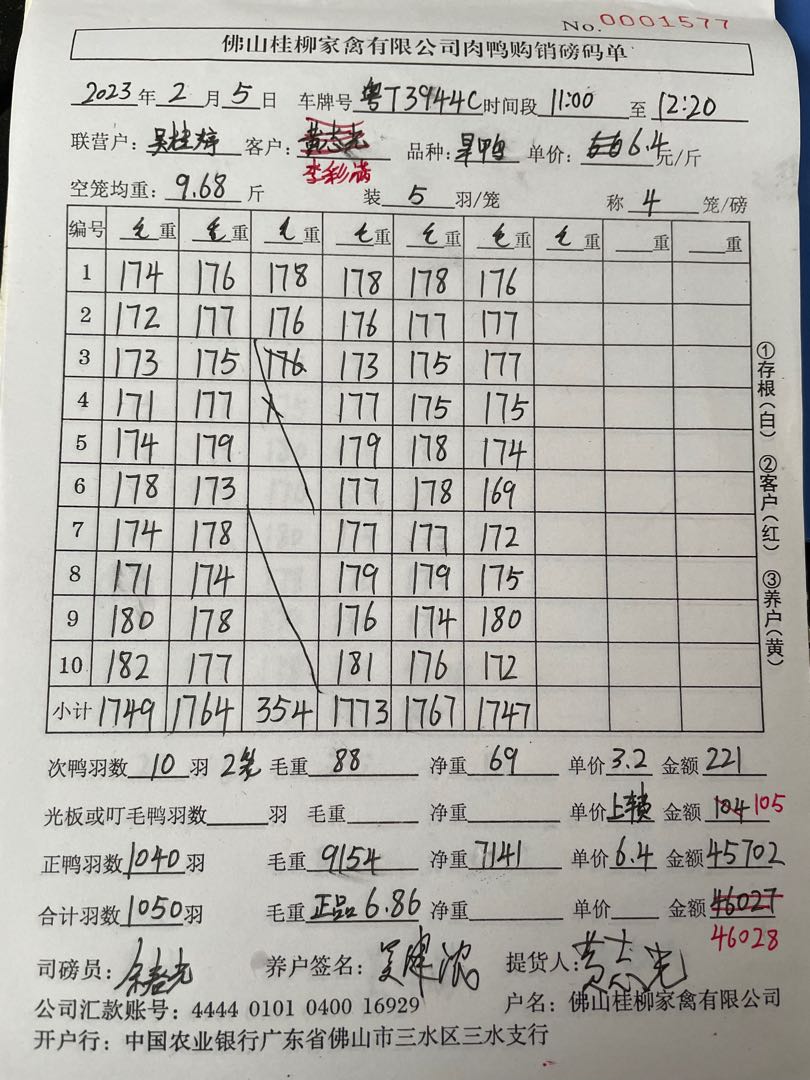 No. 0001577
佛山桂柳家禽有限公司肉鸭购销磅码单
2023年2月5日 车牌号粤T3944C时间段11:00至12:20
联营户：吴桂婷 客户：黄志光 品种：旱鸭 单价：6.4元/斤
李彩满
空笼均重：9.68斤 装5羽/笼 称4笼/磅
编号 毛重 毛重 毛重 毛重 毛重 毛重 毛重 重 重
1 174 176 178 178 178 176
2 172 177 176 176 177 177
3 173 175 176 173 175 177
4 171 177 177 175 175
5 174 179 179 178 174
6 178 173 177 178 169
7 174 178 177 177 172
8 171 174 179 179 175
9 180 178 176 174 180
10 182 177 181 176 172
小计 1749 1764 354 1773 1767 1747
次鸭羽数10羽 2笼 毛重88 净重69 单价3.2 金额221
光板或叮毛鸭羽数 羽 毛重 净重 单价上赖 金额104 105
正鸭羽数1040羽 毛重9154 净重7141 单价6.4 金额45702
合计羽数1050羽 毛重正品6.86 净重 单价 金额46027
46028
司磅员： 养户签名： 提货人：黄志光
公司汇款账号：4444 0101 0400 16929 户名：佛山桂柳家禽有限公司
开户行：中国农业银行广东省佛山市三水区三水支行
①存根(白) ②客户(红) ③养户(黄)